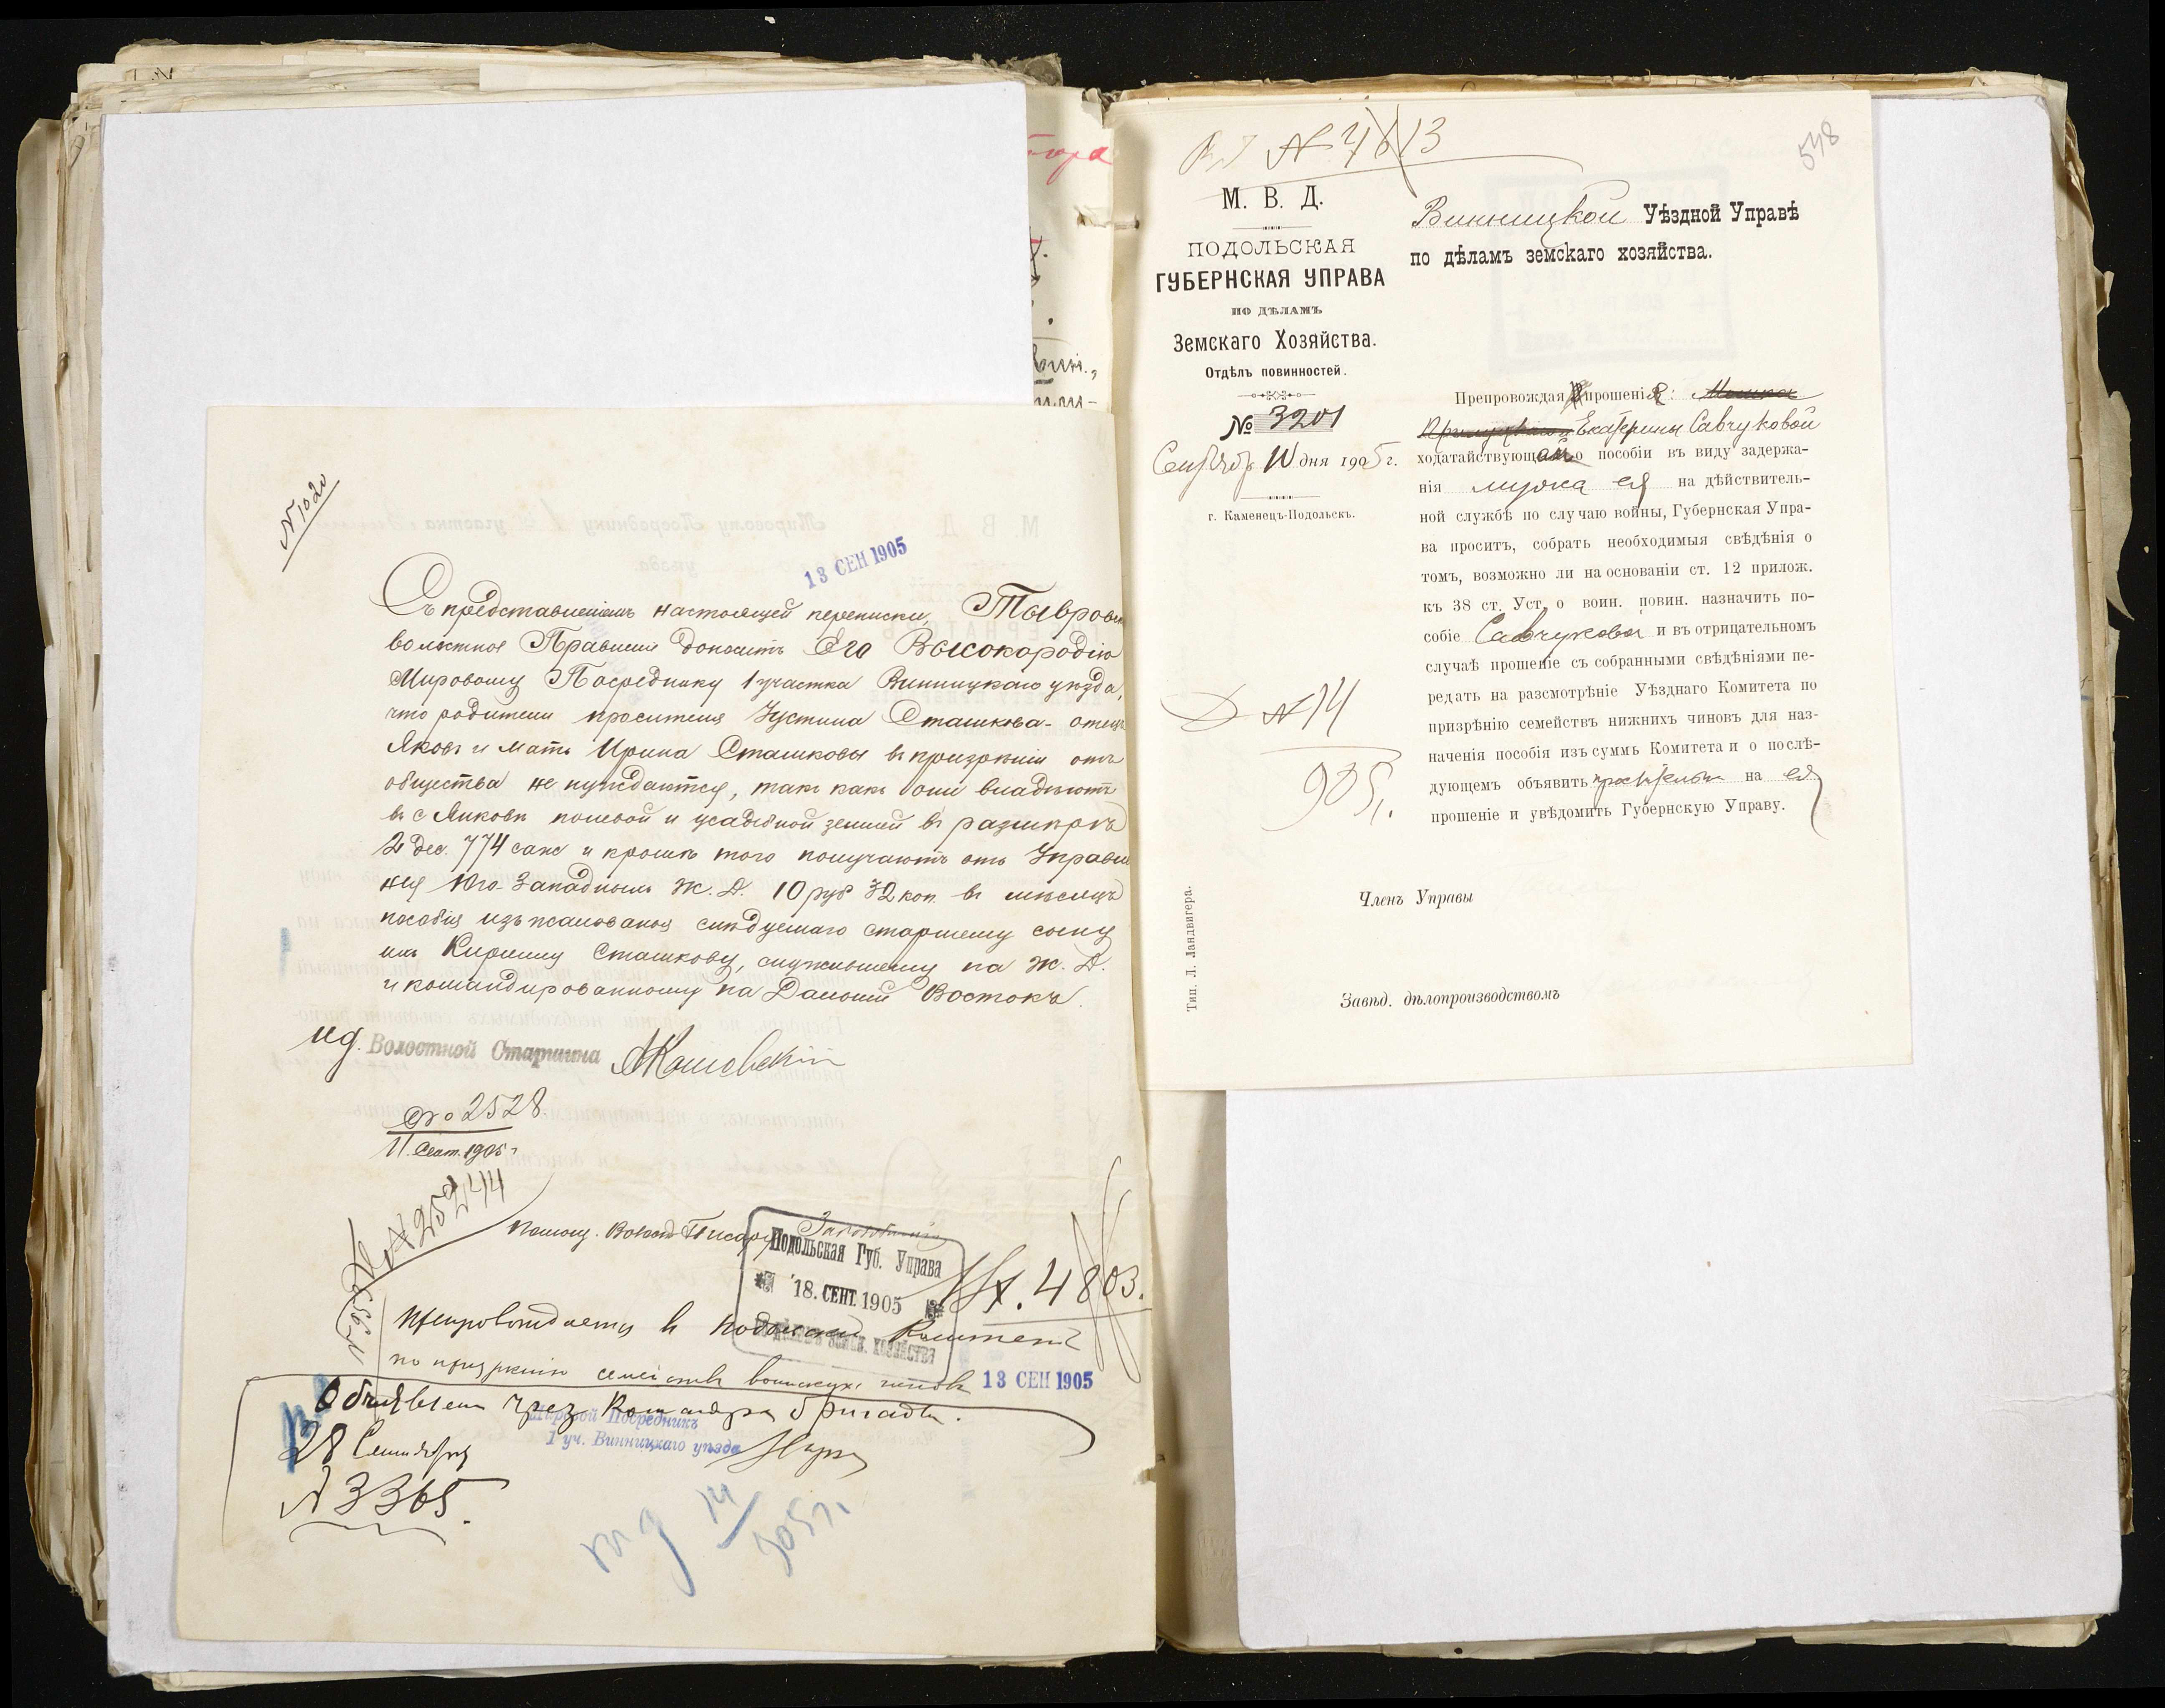 № 1020
13 СЕН 1905
Съ представленіемъ настоящей переписки, Тывровск
волостное Правленіе доноситъ Его Высокородію
Мировому Посреднику 1 участка Винницкаго уѣзда,
что родители просителя Устина Сташкова - отецъ
Яковъ и мать Ирина Сташковы въ призрѣніи отъ
общества не нуждаются, такъ какъ они владѣютъ
въ с Янковѣ полевой и усадебной землей въ размѣрѣ
2 дес. 774 саж и кромѣ того получаютъ отъ Управле
нія Юго-Западныхъ Ж. Д. 10 руб 32 коп. въ мѣсяцъ
пособія изъ жалованья слѣдуемаго старшему сыну
ихъ Кириллу Сташкову, служившему на Ж. Д.
и командированному на Дальній Востокъ.
ид. Волостной Старшина
№ 2528.
11 Сент. 1905 г
№ 25244
Помощ. Волост Писаря
Подольская Губ. Управа
18. СЕНТ. 1905
по дѣламъ земск. хозяйства
Вх. 4803.
Препровождается в Подольскій Комитетъ
по призрѣнію семействъ воинскихъ чиновъ
13 СЕН 1905
Объявлен чрез Командра бригады.
Мировой Посредникъ
1 уч. Винницкаго уѣзда
28 Сентября
№ 3365.
14
905 г.
№ 4813
548
М. В. Д.
ПОДОЛЬСКАЯ
ГУБЕРНСКАЯ УПРАВА
ПО ДѢЛАМЪ
Земскаго Хозяйства.
Отдѣлъ повинностей.
№ 3201
Сентябр 10 дня 1905 г.
г. Каменецъ-Подольскъ.
Д № 14
905 г.
Тип. Л. Ландвигера.
Винницкой Уѣздной Управѣ
по дѣламъ земскаго хозяйства.
Препровождая прошеніе:
Екатерины Савчуковой
ходатайствующей о пособіи въ виду задержа-
нія мужа ея на дѣйствитель-
ной службѣ по случаю войны, Губернская Упра-
ва проситъ, собрать необходимыя свѣдѣнія о
томъ, возможно ли на основаніи ст. 12 прилож.
къ 38 ст. Уст. о воин. повин. назначить по-
собіе Савчуковой и въ отрицательномъ
случаѣ прошеніе съ собранными свѣдѣніями пе-
редать на разсмотрѣніе Уѣзднаго Комитета по
призрѣнію семействъ нижнихъ чиновъ для наз-
наченія пособія изъ суммъ Комитета и о послѣ-
дующемъ объявить просительн на ея
прошеніе и увѣдомить Губернскую Управу.
Членъ Управы
Завѣд. дѣлопроизводствомъ